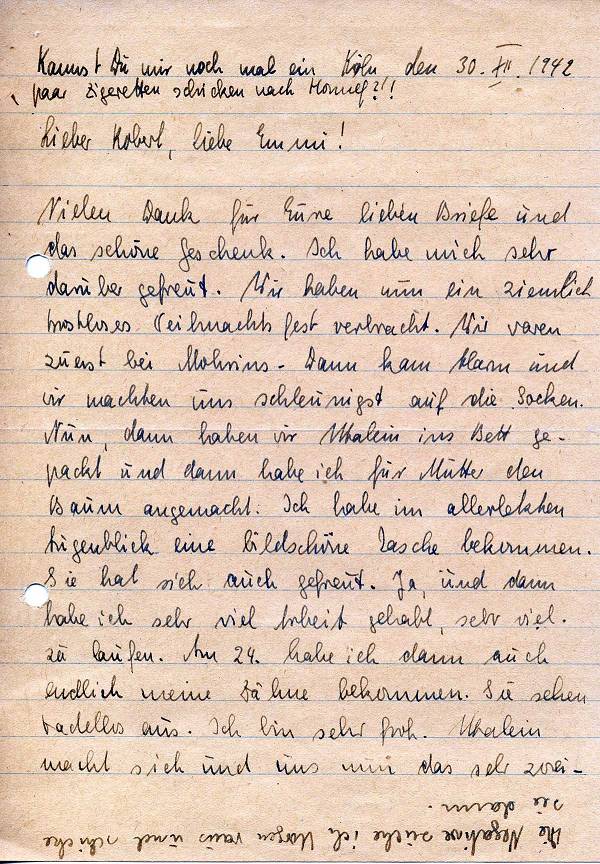 Kannst Du mir noch mal ein Köln den 30. XII. 1942
paar Zigeretten schicken nach Honnef?!!
Lieber Robert, liebe Emmi!
Vielen Dank für Eure lieben Briefe und
das schöne Geschenk. Ich habe mich sehr
darüber gefreut. Wir haben nun ein ziemlich
trostloses Weihnachtsfest verbracht. Wir waren
zuerst bei - Dann kam Alarm und
wir machten uns schleunigst auf die Socken.
Nun, dann haben wir ins Bett ge-
packt und dann habe ich für Mutter den
Baum angemacht. Ich habe im allerletzten
Augenblick eine bildschöne Tasche bekommen.
Sie hat sich auch gefreut. Ja, und dann
habe ich sehr viel Arbeit gehabt, sehr viel
zu laufen. Am 24. habe ich dann auch
endlich meine Zähne bekommen. Sie sehen
tadellos aus. Ich bin sehr froh.
macht sich und uns nun das sehr zwei-
Die Negative suche ich Morgen raus und schicke
sie dann.